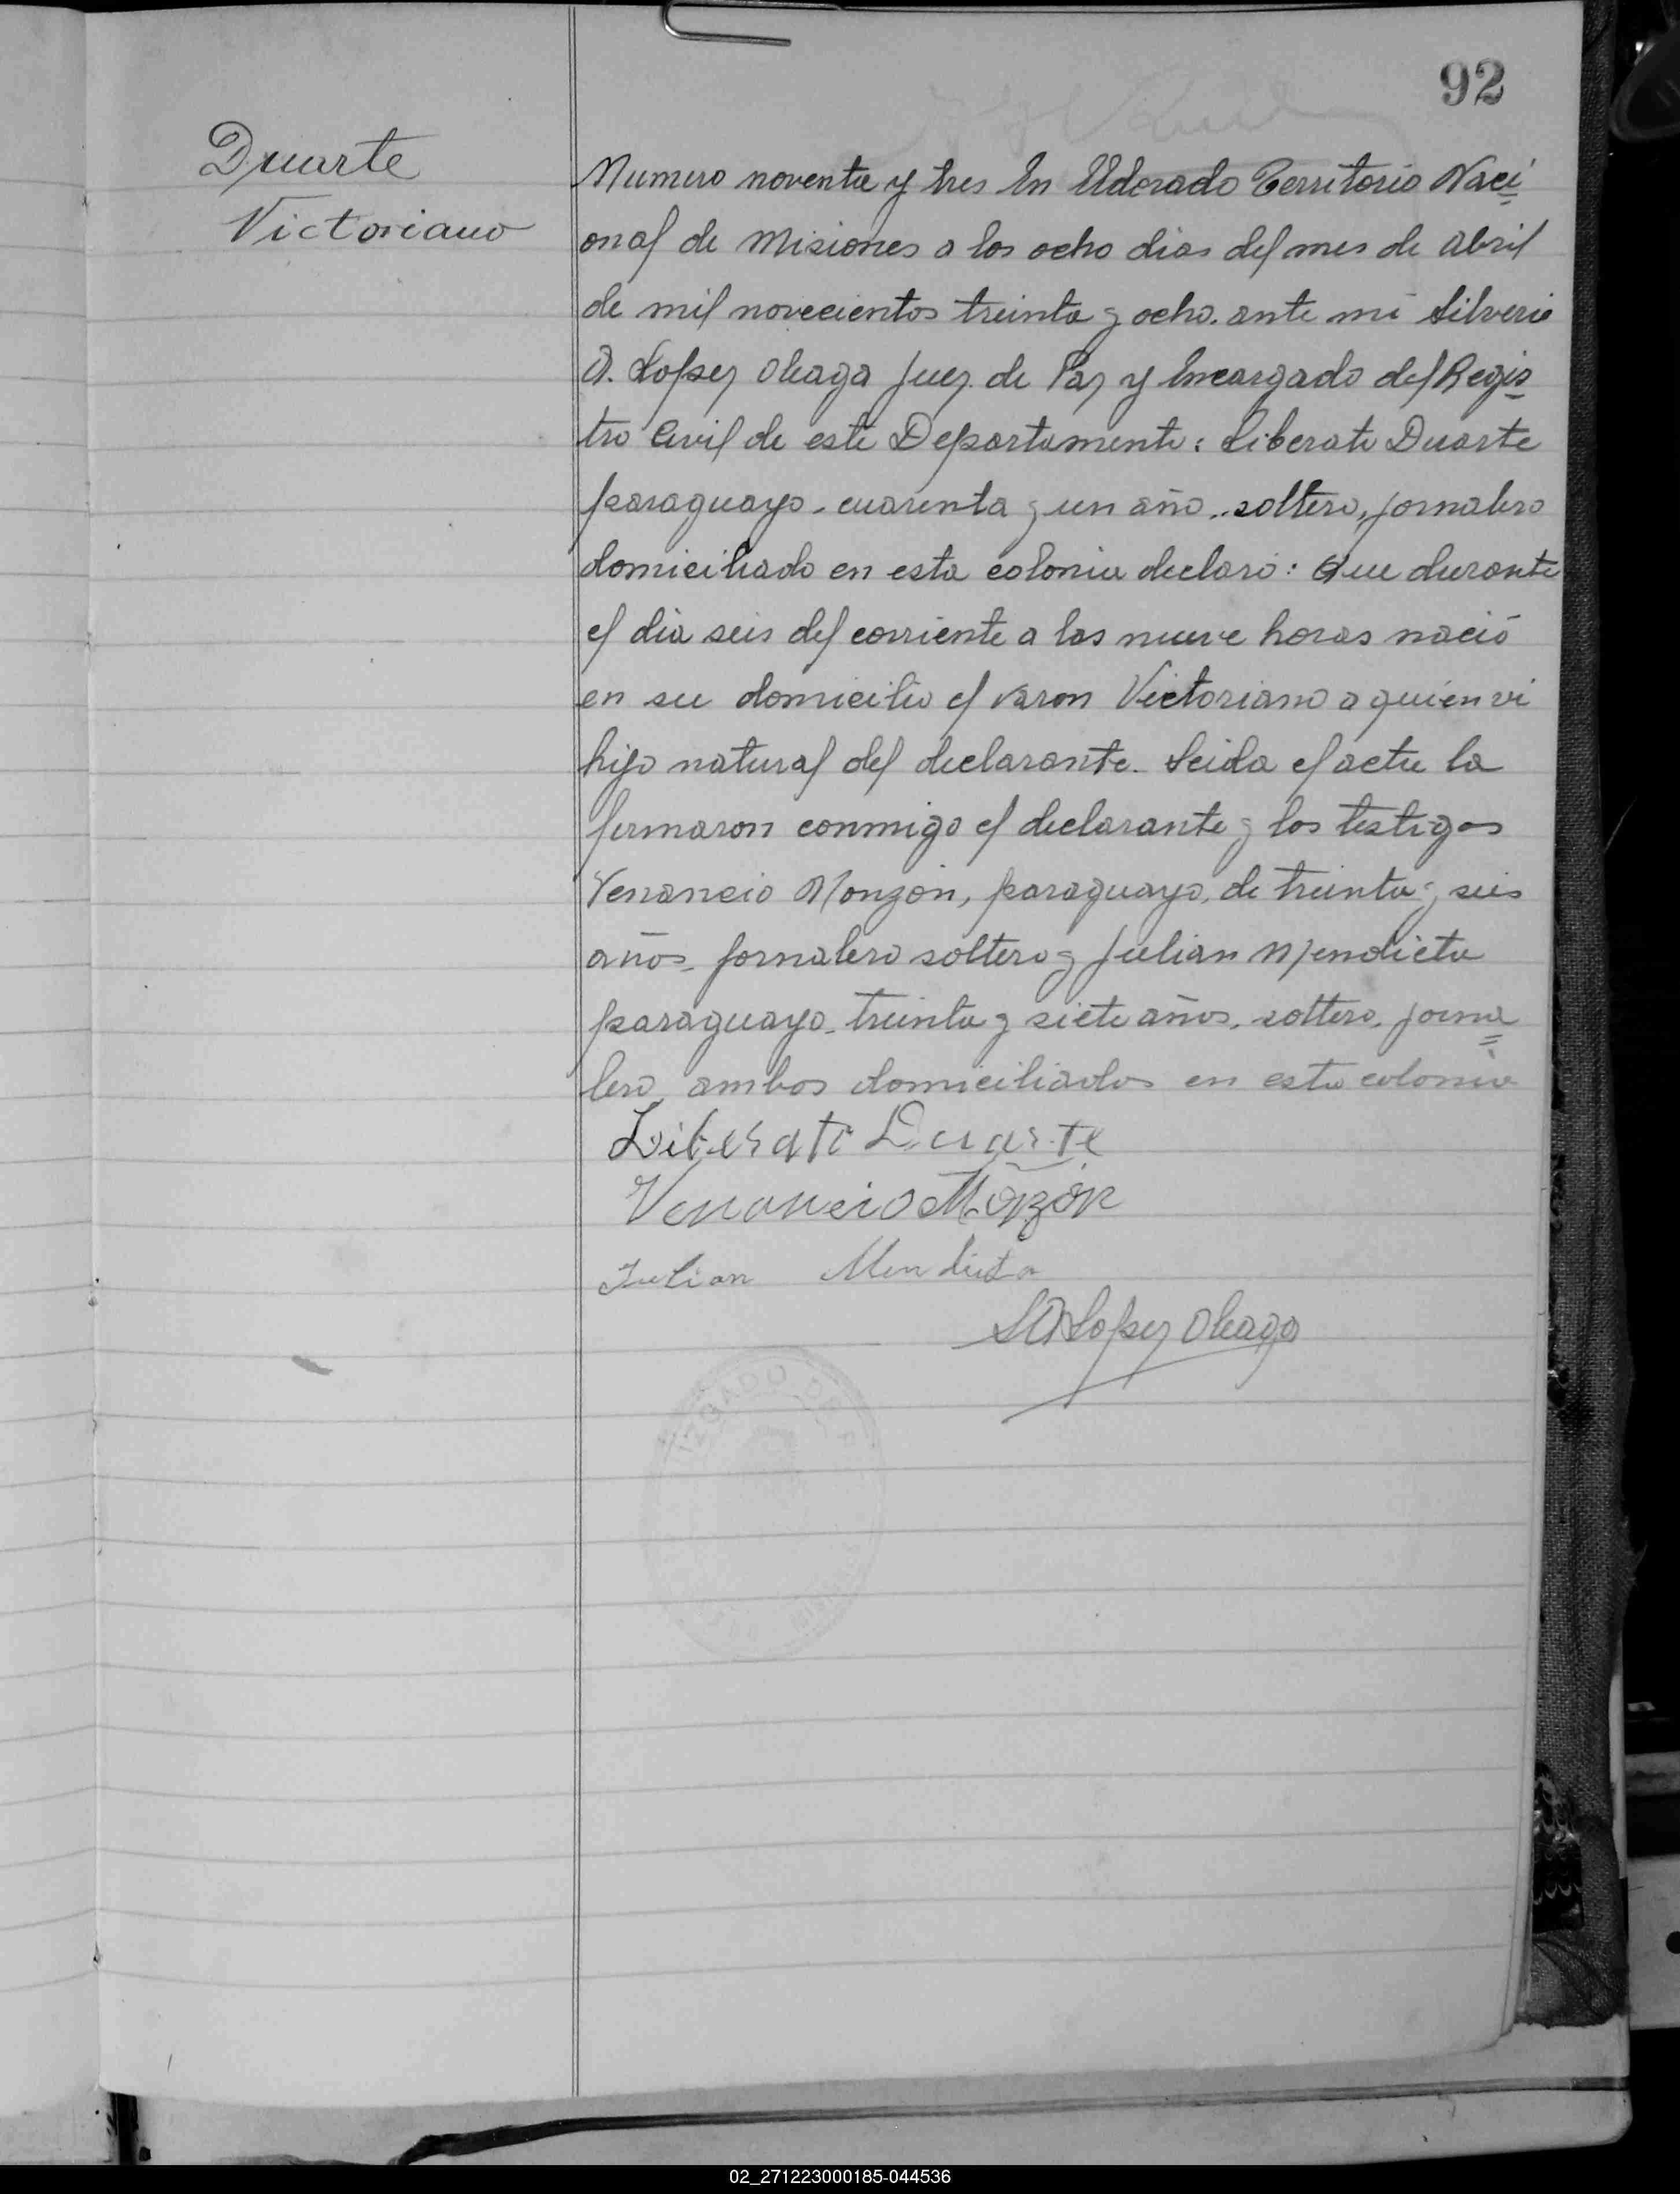 92
Duarte
Victoriano
Numero noventa y tres En Eldorado Territorio Naci
onal de Misiones a los ocho dias del mes de Abril
de mil novecientos treinta y ocho. ante mi Silverio
A. Lopez Oleaga Juez de Paz y Encargado del Regis
tro Civil de este Departamento: Liberato Duarte
paraguayo. cuarenta y un año. soltero, jornalero
domiciliado en esta colonia declaró: Que durante
el dia seis del corriente a las nueve horas nació
en su domicilio el varon Victoriano a quien vi
hijo natural del declarante. Leida el acta la
firmaron conmigo el declarante y los testigos
Venancio Monzón, paraguayo, de treinta y seis
años. jornalero soltero y Julian Mendieta
paraguayo. treinta y siete años. soltero. jorna
lero, ambos domiciliados en esta colonia
Liberato Duarte
Venancio Monzón
Julian Mendieta
SALopez Oleaga
02_271223000185-044536